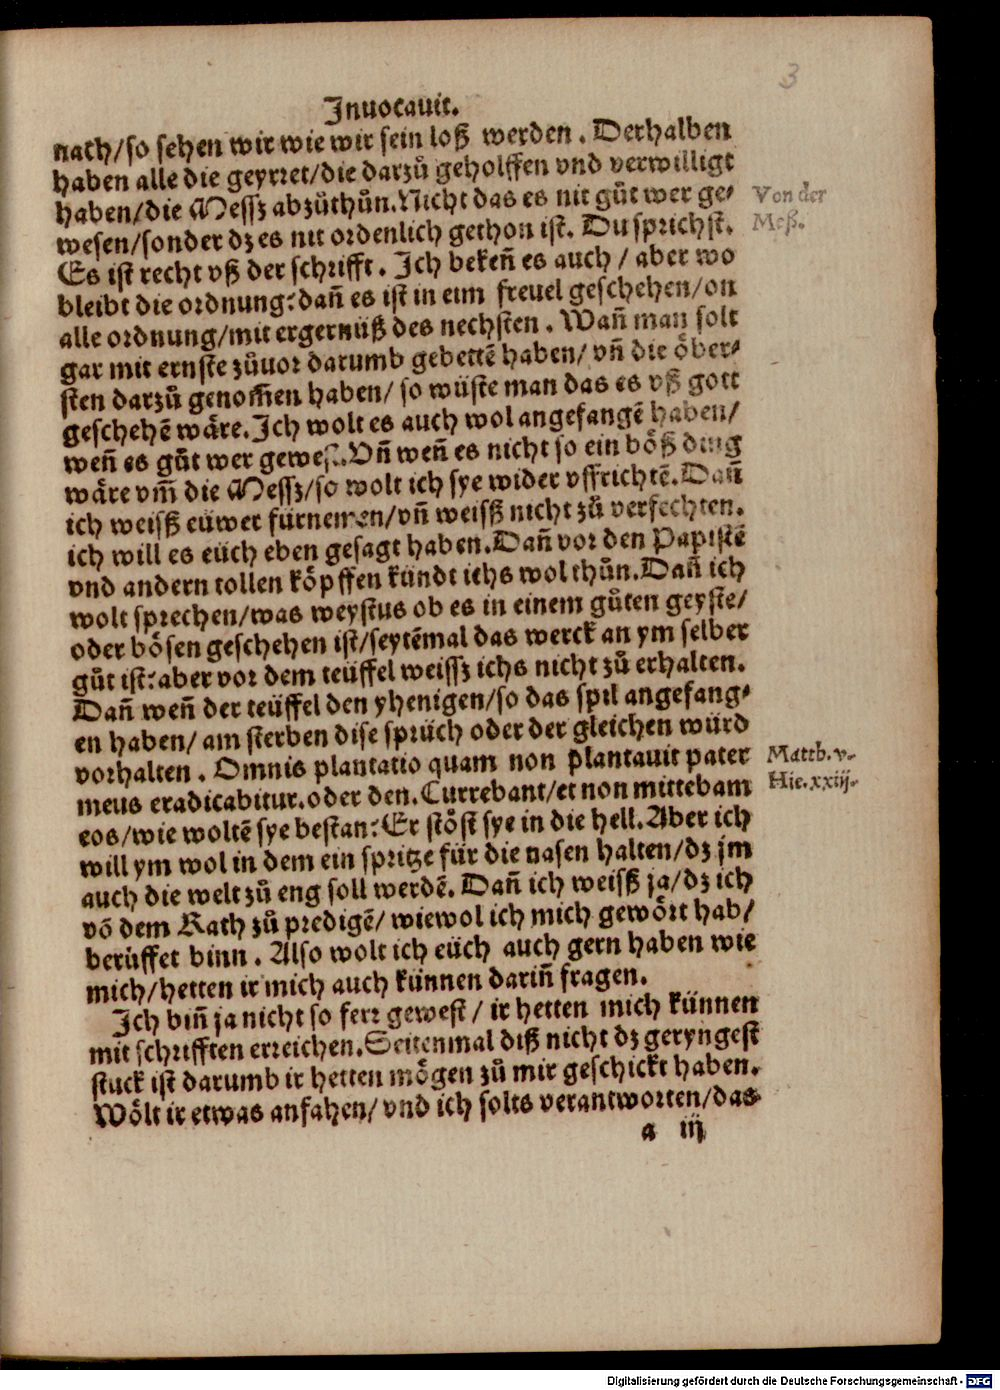 3
Jnuocauit.
nach/so sehen wir wie wir sein loß werden. Derhalben
haben alle die geyrret/die darzů geholffen vnd verwilligt
haben/die Messz abzůthůn. Nicht das es nit gůt wer ge-
Von der
wesen/sonder dz es nit ordenlich gethon ist. Du sprichst.
Meß.
Es ist recht vß der schrifft. Ich bekeñ es auch / aber wo
bleibt die ordnung: dañ es ist in eim freuel geschehen/on
alle ordnung/mit ergernüß des nechsten. Wañ man solt
gar mit ernste zůuor darumb gebettē haben/ vñ die öber-
sten darzů genom̃en haben/ so wüste man das es vß gott
geschehē wäre. Ich wolt es auch wol angefangē haben/
weñ es gůt wer gewest. Vñ weñ es nicht so ein böß ding
wäre vm̃ die Messz/so wolt ich sye wider vffrichtē. Dañ
ich weisß eüwer fürnemen/vñ weisß nicht zů verfechten.
ich will es eüch eben gesagt haben. Dañ vor den Papistē
vnd andern tollen köpffen kündt ichs wol thůn. Dañ ich
wolt sprechen/was weystus ob es in einem gůten geyste/
oder bösen geschehen ist/seytēmal das werck an ym selber
gůt ist: aber vor dem teüffel weissz ichs nicht zů erhalten.
Dañ weñ der teüffel den yhenigen/so das spil angefang-
en haben/ am sterben dise sprüch oder der gleichen würd
vorhalten. Omnis plantatio quam non plantauit pater
Matth. v.
meus eradicabitur. oder den. Currebant/et non mittebam
Hie. xxiij.
eos/wie woltē sye bestan: Er stöst sye in die hell. Aber ich
will ym wol in dem ein spritze für die nasen halten/dz jm
auch die welt zů eng soll werdē. Dañ ich weisß ja/dz ich
vō dem Rath zů predigē/ wiewol ich mich gewört hab/
berüffet binn. Also wolt ich eüch auch gern haben wie
mich/hetten ir mich auch künnen dariñ fragen.
Ich biñ ja nicht so ferr gewest / ir hetten mich künnen
mit schrifften erreichen. Seitenmal diß nicht dz geryngest
stuck ist darumb ir hetten mögen zů mir geschickt haben.
Wölt ir etwas anfahen/ vnd ich solts verantworten/das
a iij
Digitalisierung gefördert durch die Deutsche Forschungsgemeinschaft - DFG